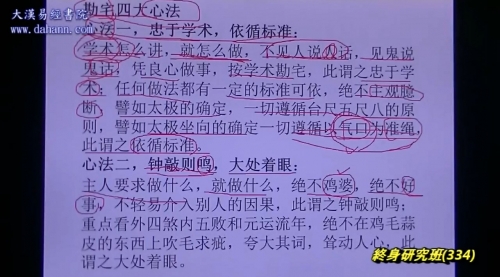 大漢易經書院
www.dahann.com
勘宅四大心法
心法一，忠于学术，依循标准：
学术怎么讲，就怎么做，不见人说人话，见鬼说
鬼话；凭良心做事，按学术勘宅，此谓之忠于学
术；任何做法都有一定的标准可依，绝不主观臆
断，譬如太极的确定，一切遵循台尺五尺八的原
则，譬如太极坐向的确定一切遵循以气口为准绳，
此谓之依循标准。
心法二，钟敲则鸣，大处着眼：
主人要求做什么，就做什么，绝不鸡婆，绝不好
事，不轻易介入别人的因果，此谓之钟敲则鸣；
重点看外四煞内五败和元运流年，绝不在鸡毛蒜
皮的东西上吹毛求疵，夸大其词，耸动人心，此
谓之大处着眼。
終身研究班(334)